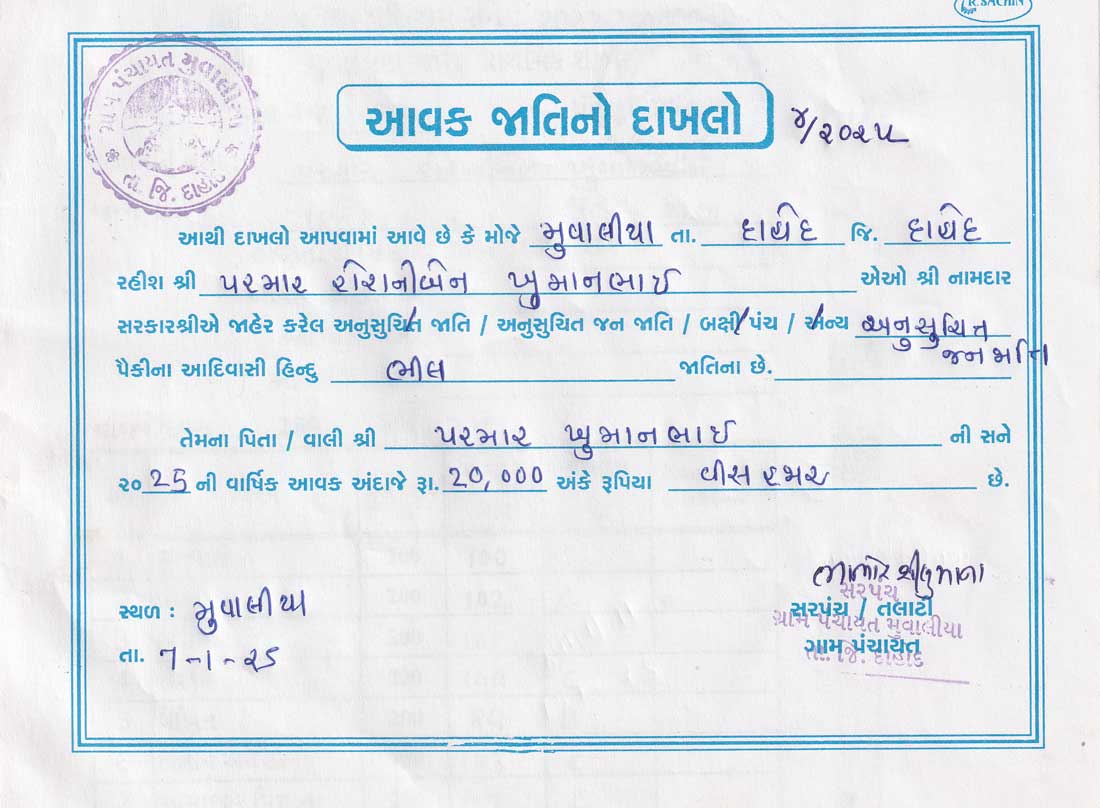 R. SACHIN
ગ્રામ પંચાયત મુવાલીયા
તા. જિ. દાહોદ
આવક જાતિનો દાખલો
૪/૨૦૨૫
આથી દાખલો આપવામાં આવે છે કે મોજે મુવાલીયા તા. દાહોદ જિ. દાહોદ
રહીશ શ્રી પરમાર રોશનીબેન ખુમાનભાઈ એઓ શ્રી નામદાર
સરકારશ્રીએ જાહેર કરેલ અનુસુચિત જાતિ / અનુસુચિત જન જાતિ / બક્ષી પંચ / અન્ય અનુસુચિત
જનજાતિ
પૈકીના આદિવાસી હિન્દુ ભીલ જાતિના છે.
તેમના પિતા / વાલી શ્રી પરમાર ખુમાનભાઈ ની સને
૨૦ 25 ની વાર્ષિક આવક અંદાજે રૂા. 20,000 અંકે રૂપિયા વીસ હજાર છે.
સ્થળ : મુવાલીયા
તા. 7-1-25
સરપંચ
સરપંચ / તલાટી
ગ્રામ પંચાયત મુવાલીયા
ગ્રામ પંચાયત
તા. જિ. દાહોદ